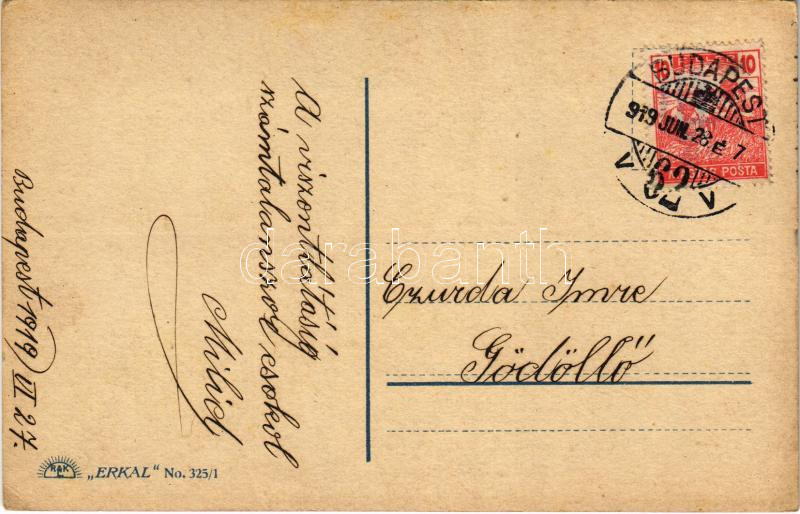 A viszontlátásig
számtalanszor csokol
Milicd
Budapest 1919 VI 27.
Czurda Imre
Gödöllő
10 10
POSTA
BUDAPEST
919 JUN. 28 É 7
62
RAK
„ERKAL" No. 325/1
darabanth